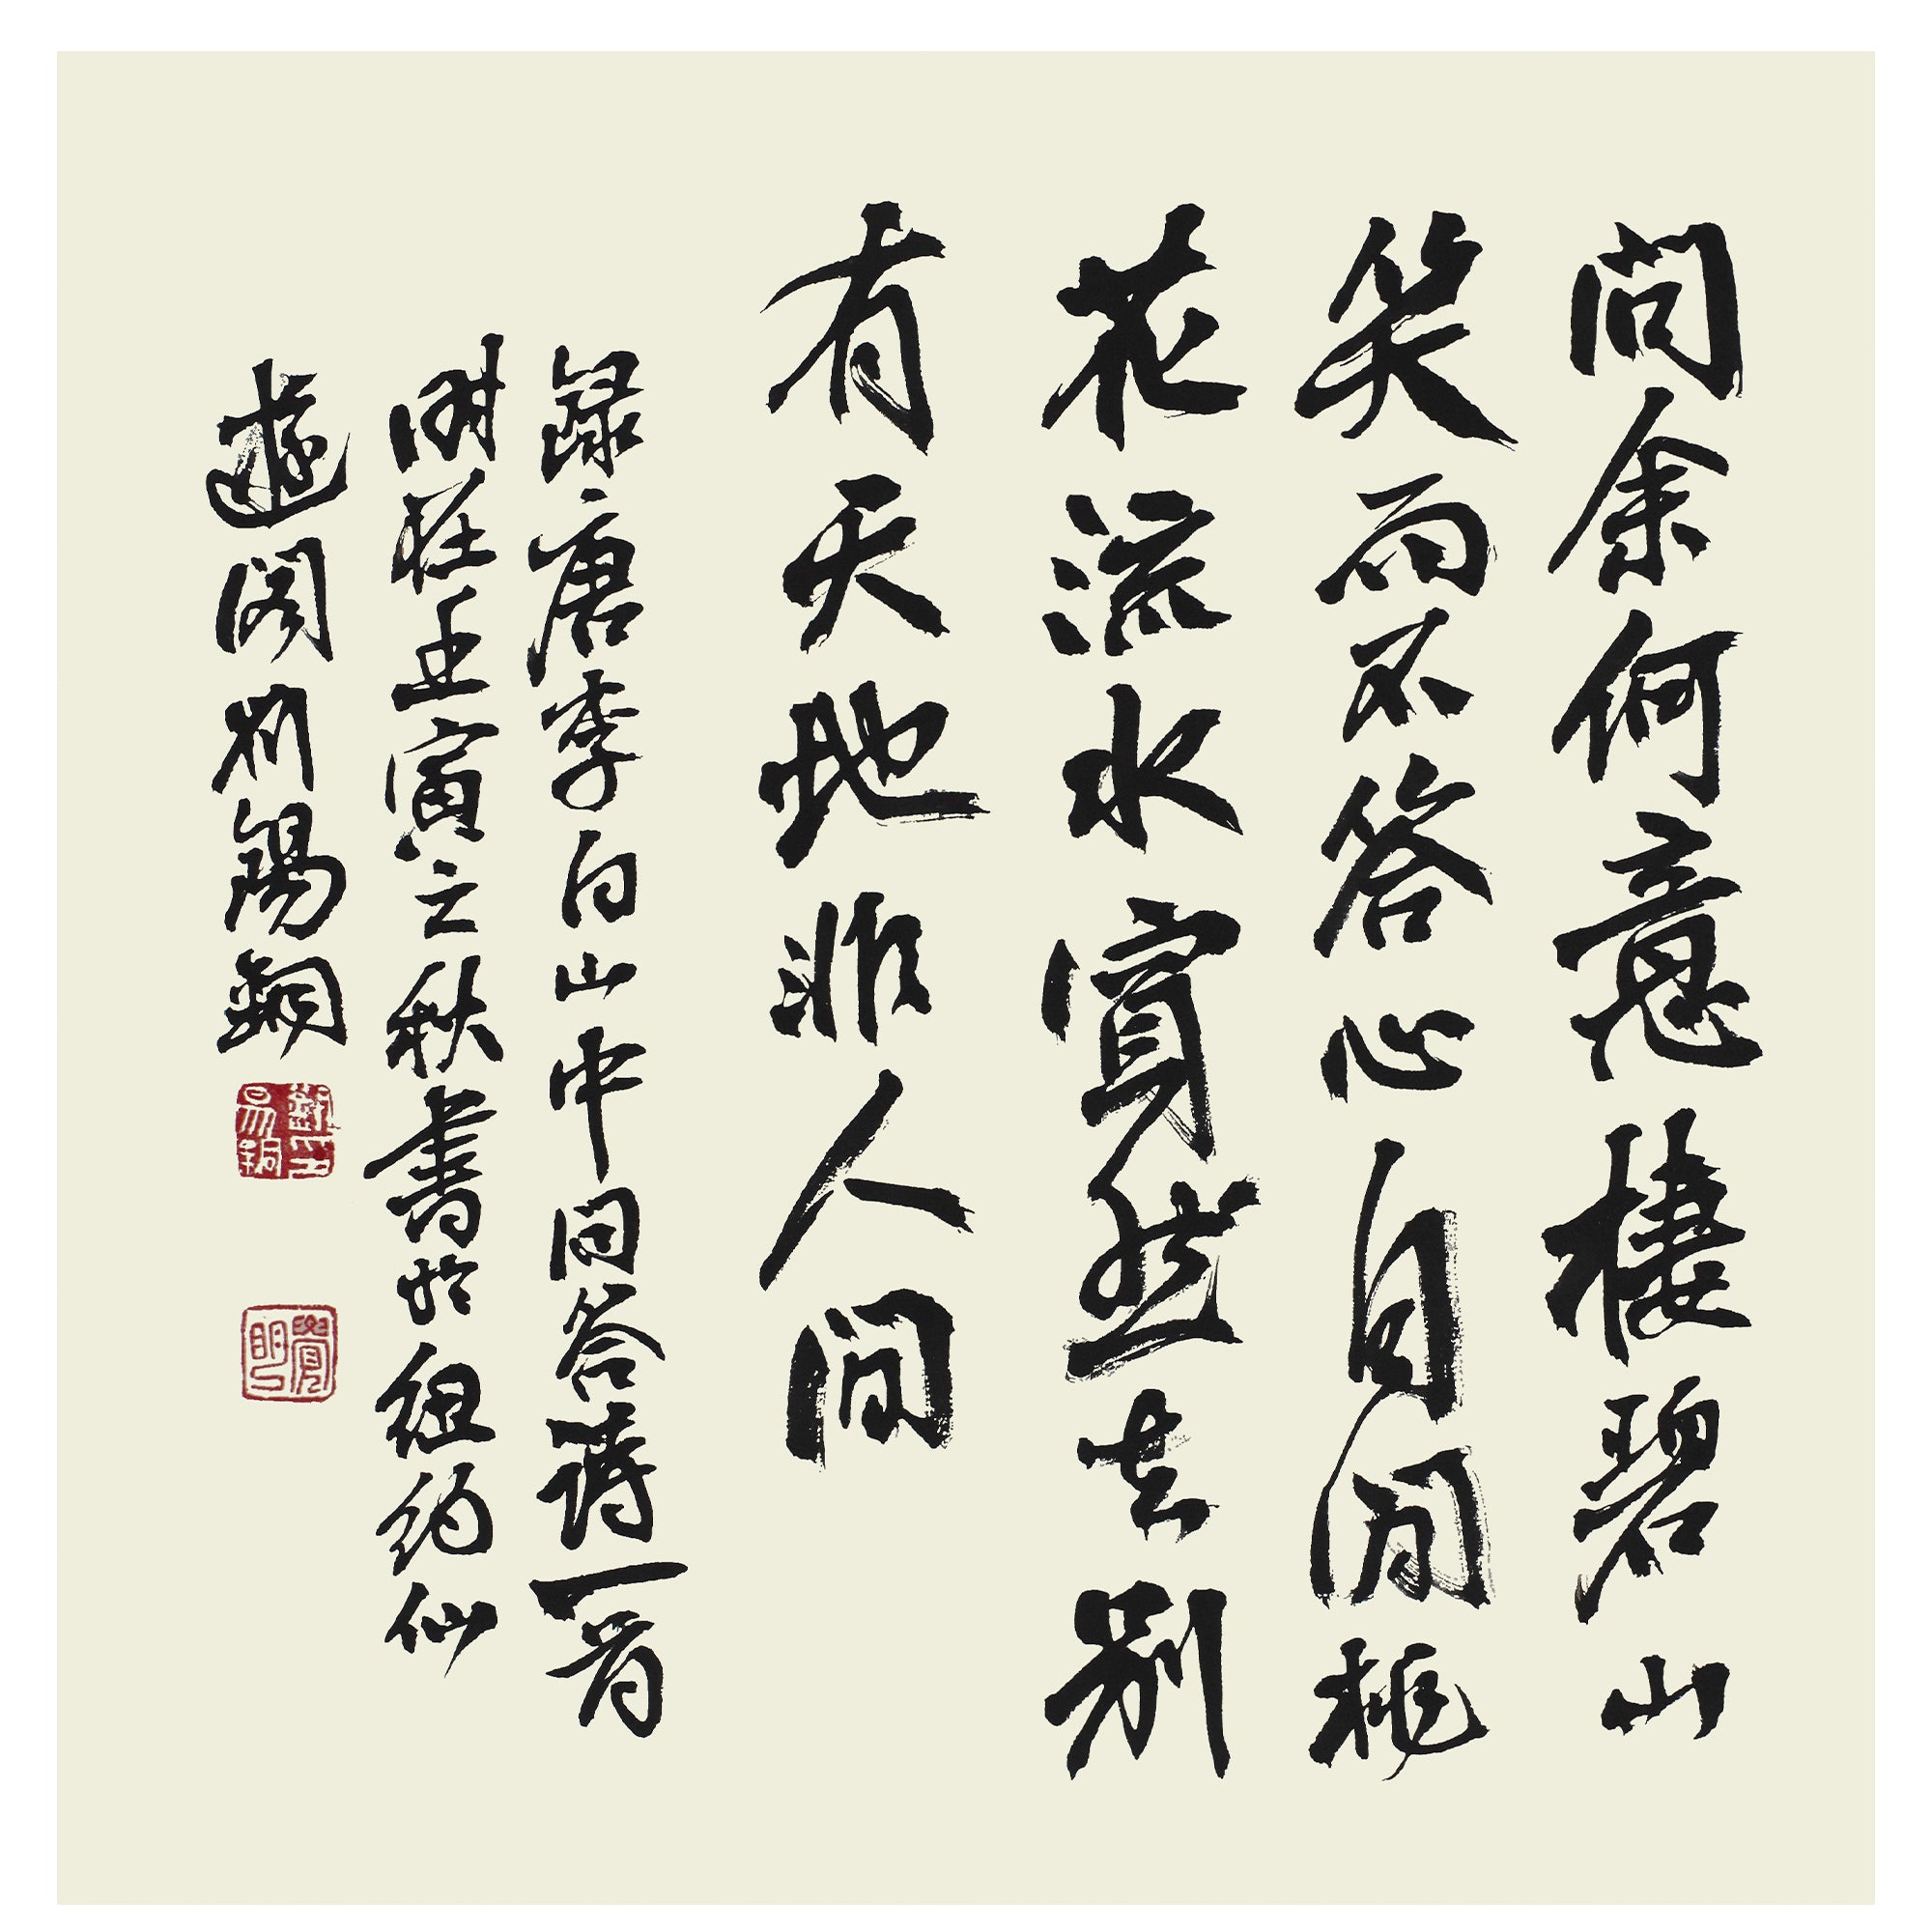 問余何意棲碧山
笑而不答心自閒桃
花流水窅然去別
有天地非人間
錄唐李白山中問答詩一首
寅之秋書於紐約仙
閣劉錫銅